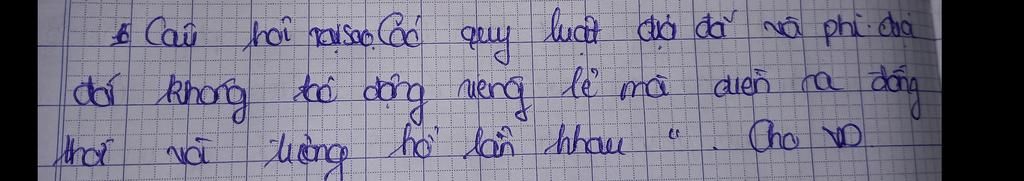 Câu hỏi tại sao. Các quy luật cựa đá và phi cựa
đá không tác động riêng lẻ mà diễn ra đồng
thời và tương hỗ lẫn nhau ". Cho VD